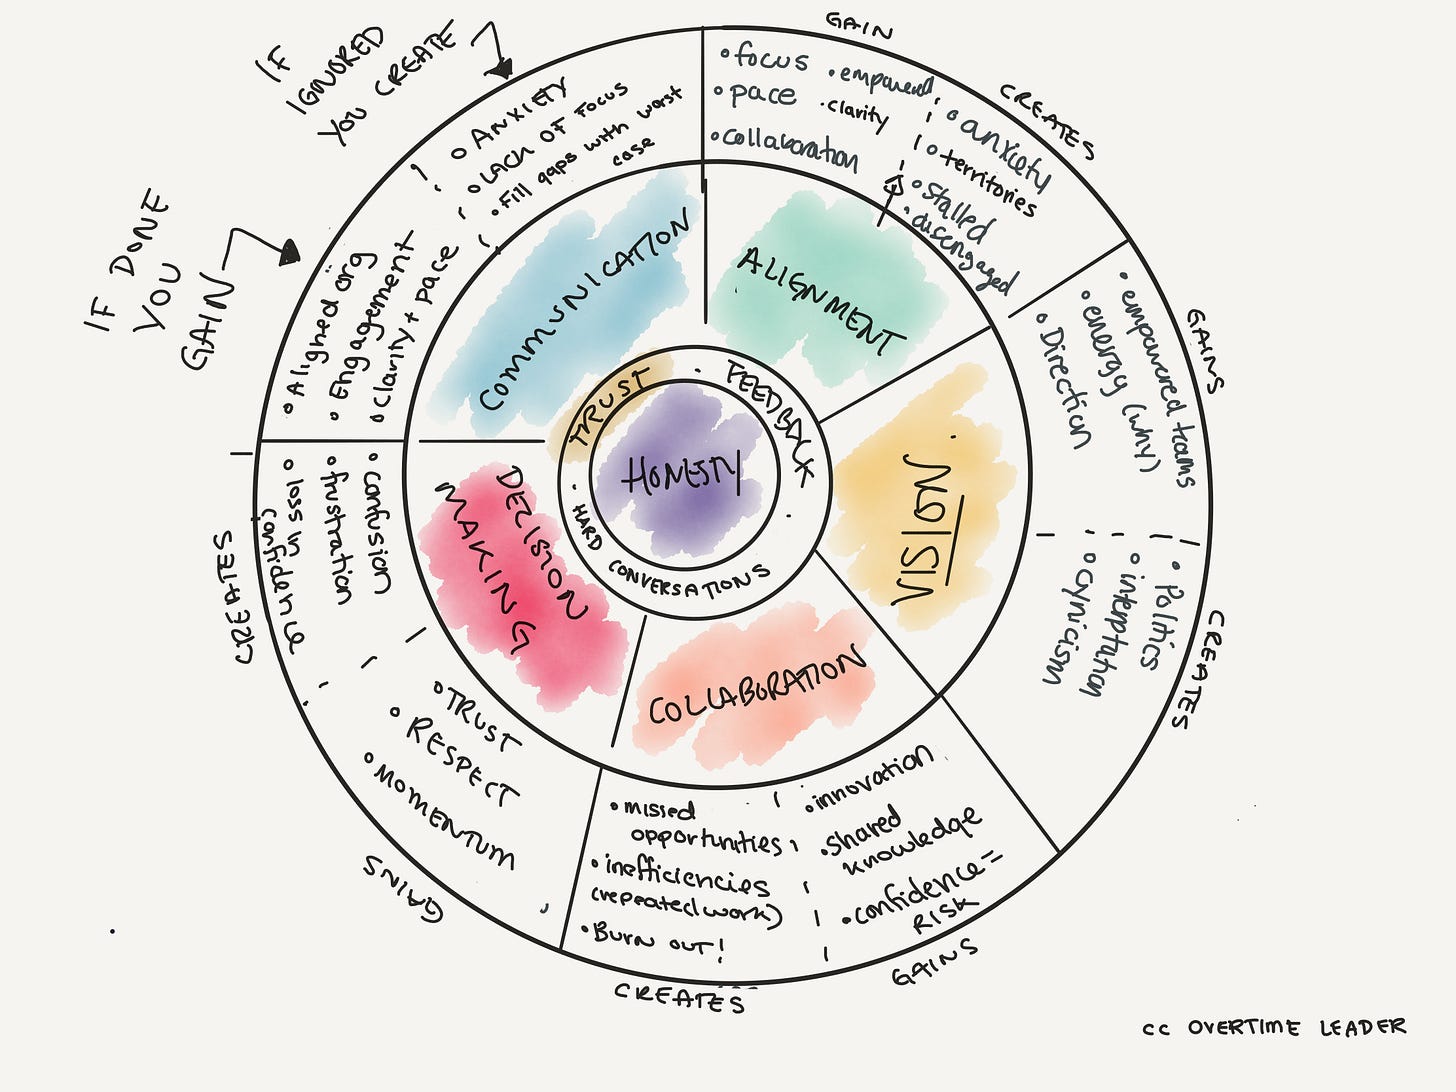 IF
IGNORED
YOU CREATE
IF DONE
YOU
GAIN
HONESTY
TRUST
FEEDBACK
HARD CONVERSATIONS
COMMUNICATION
• ANXIETY
• LACK OF FOCUS
• Fill gaps with worst
case
• Aligned org
• Engagement
• Clarity + pace
ALIGNMENT
GAIN
• focus
• pace
• collaboration
• empowered
• clarity
CREATES
• anxiety
• territories
• Stalled
• disengaged
VISION
GAINS
• empowered teams
• energy (why)
• Direction
CREATES
• Politics
• Cynicism
COLLABORATION
GAINS
• innovation
• shared
knowledge
• confidence =
RISK
CREATES
• missed
opportunities
• inefficiencies
(repeated work)
• Burn out!
DECISION
MAKING
GAINS
• TRUST
• RESPECT
• MOMENTUM
CREATES
• confusion
• frustration
• loss in
confidence
cc OVERTIME LEADER